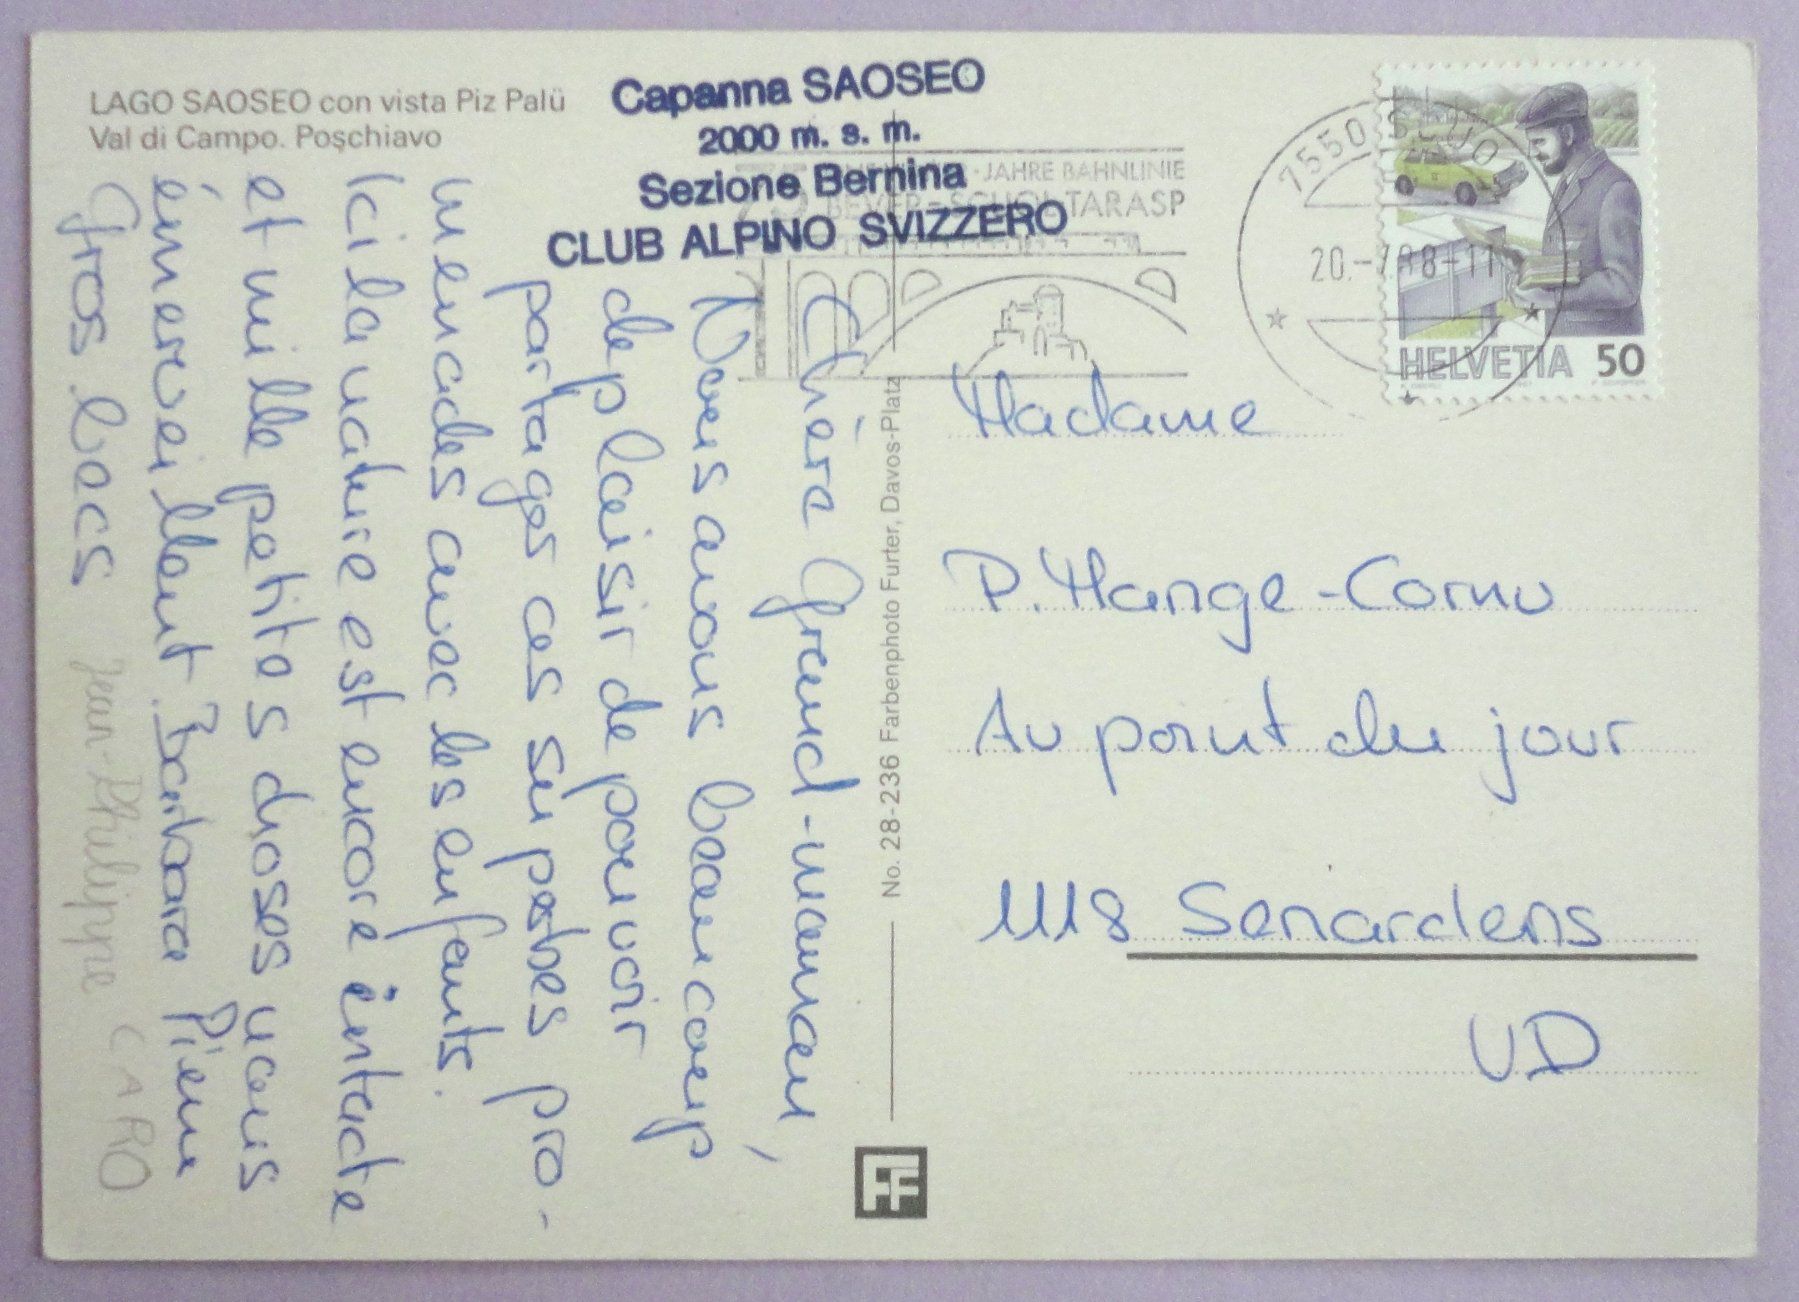 LAGO SAOSEO con vista Piz Palü
Val di Campo. Poschiavo
Capanna SAOSEO
2000 m. s. m.
Sezione Bernina
CLUB ALPINO SVIZZERO
JAHRE BAHNLINIE
BEVER-SCUOL-TARASP
7550 SCUOL
20.-7.88-11
HELVETIA 50
Chère Grand-maman,
Nous avons beaucoup
de plaisir de pouvoir
partager ces superbes pro-
menades avec les enfants.
Ici la nature est encore intacte
et mille petites choses nous
émerveillent. Barbara Pierre
Gros becs Jean-Philippe CARO
No. 28-236 Farbenphoto Furter, Davos-Platz
FF
Madame
P. Mange-Cornu
Au point du jour
1118 Senardens
VD